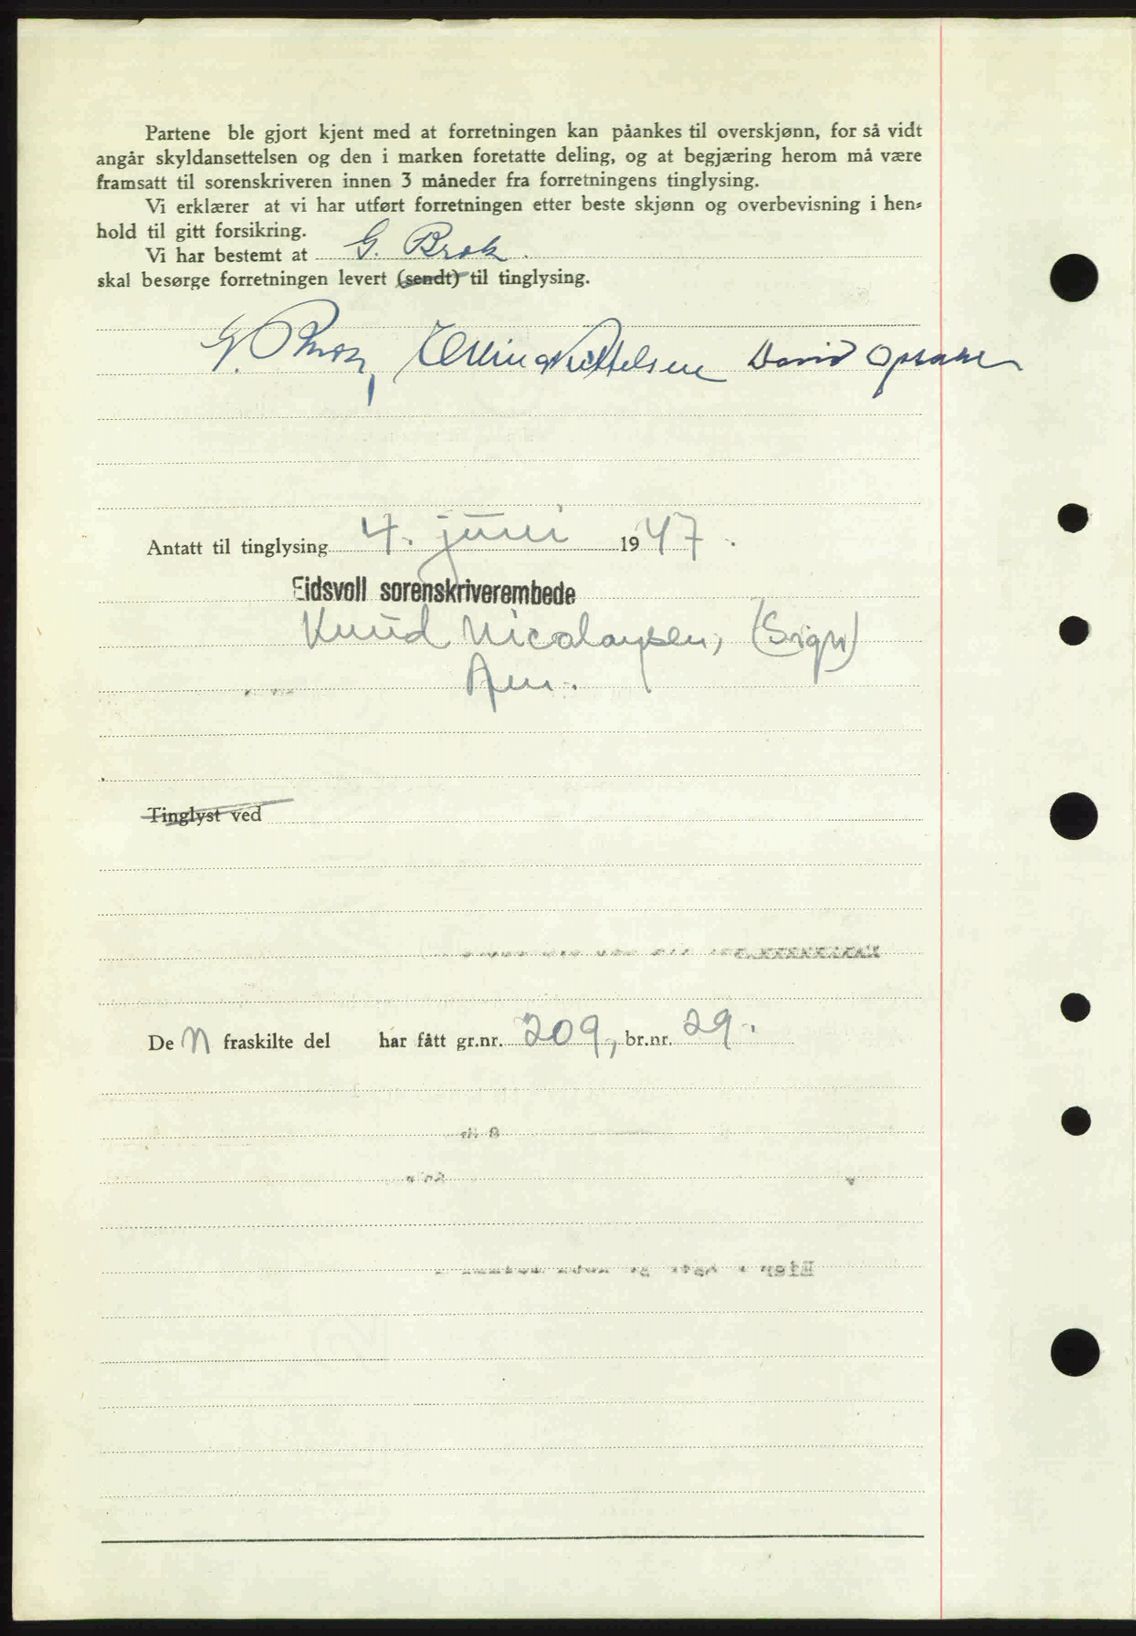 Partene ble gjort kjent med at forretningen kan påankes til overskjønn, for så vidt
angår skyldansettelsen og den i marken foretatte deling, og at begjæring herom må være
framsatt til sorenskriveren innen 3 måneder fra forretningens tinglysing.
Vi erklærer at vi har utført forretningen etter beste skjønn og overbevisning i hen-
hold til gitt forsikring.
Vi har bestemt at G. Brok.
skal besørge forretningen levert (sendt) til tinglysing.
G. Brok, Erling Kittelsen David Opsaker
Antatt til tinglysing 4. juni 1947.
Eidsvoll sorenskriverembede
Knud Nicolaysen, (Sign)
Tinglyst ved
De n fraskilte del har fått gr.nr. 209, br.nr. 29.